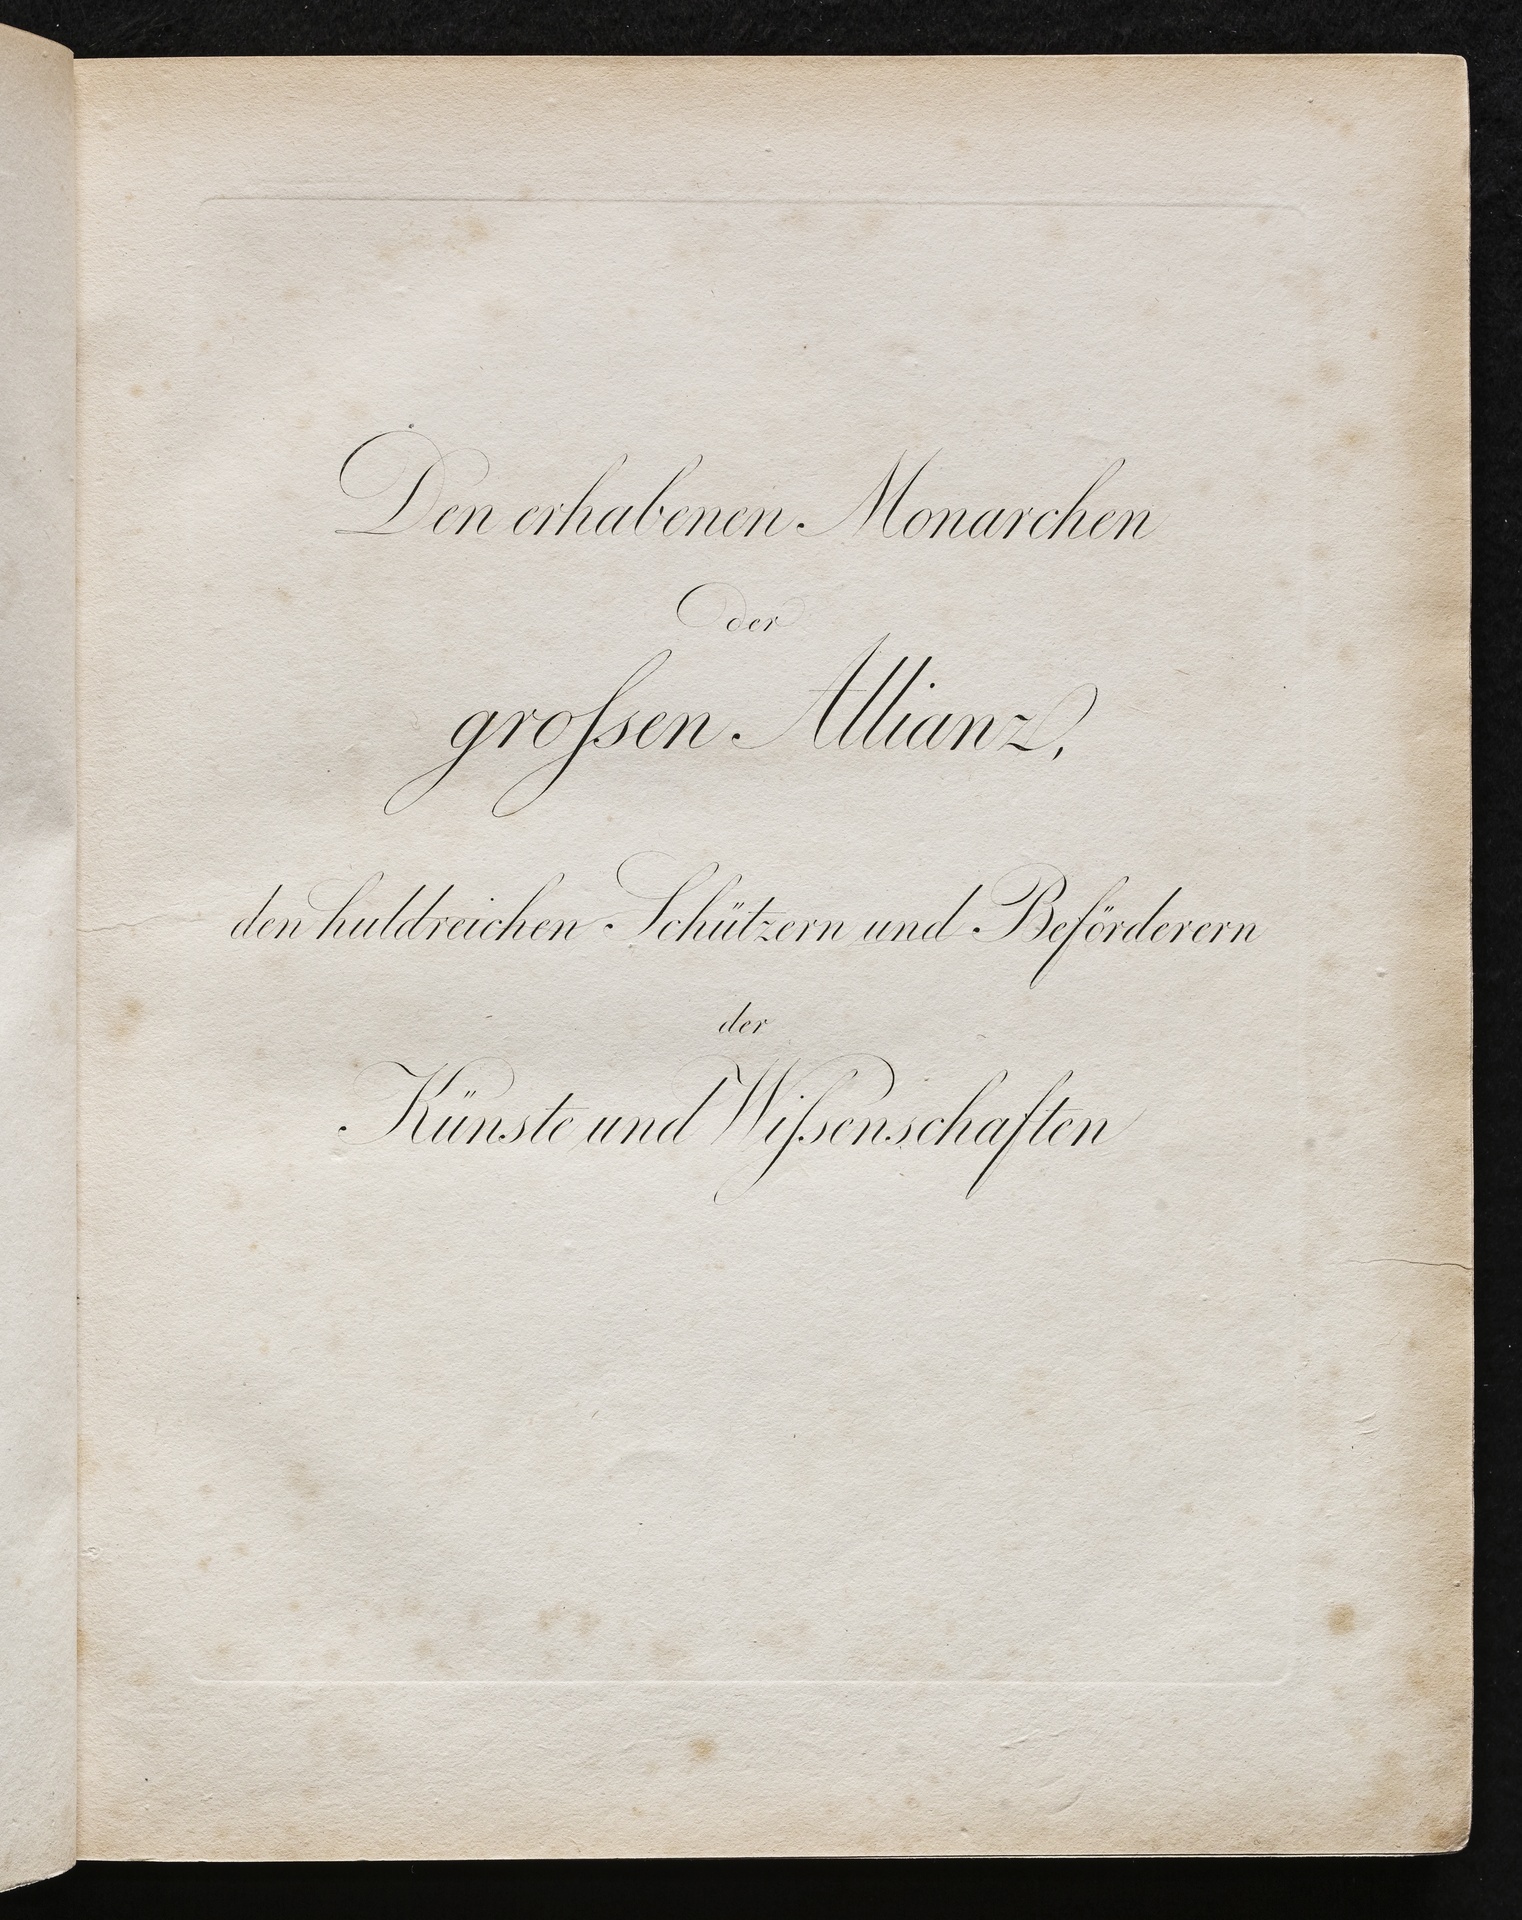 Den erhabenen Monarchen
der
groſsen Allianz,
den huldreichen Schützern und Beförderern
der
Künste und Wiſsenschaften